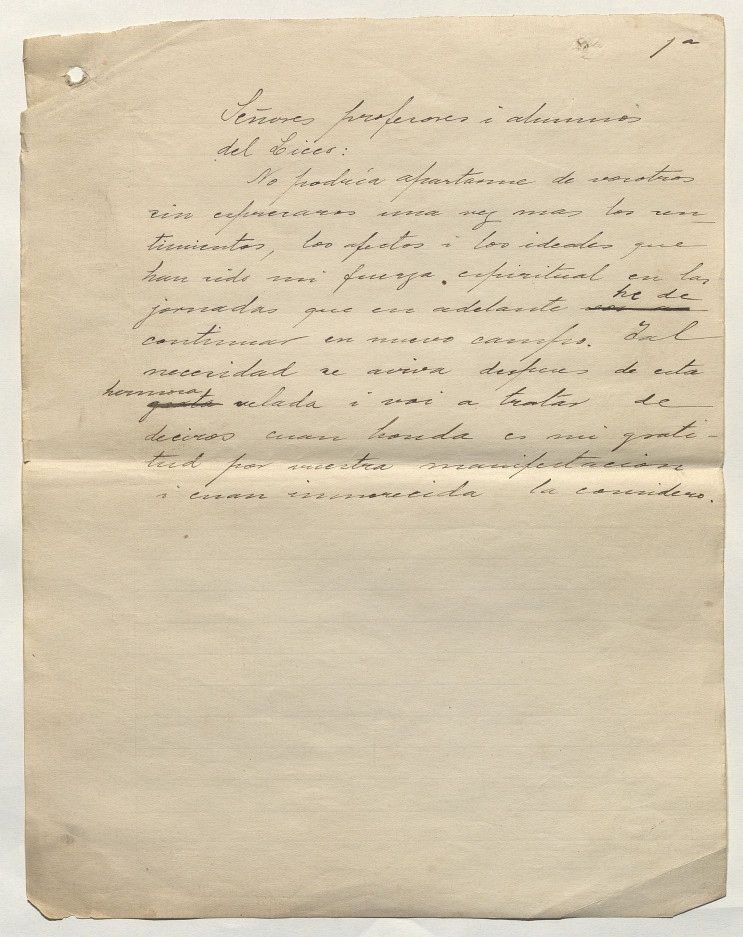 1ª
Señores profesores i alumnos
del Liceo:
No podría apartarme de vosotros
sin espresaros una vez mas los sen-
timientos, los afectos i los ideales que
han sido mi fuerza espiritual en las
he de
jornadas que en adelante
continuar en nuevo campo. Tal
necesidad se aviva despues de esta
hermosa
grata velada i voi a tratar de
deciros cuan honda es mi grati-
tud por vuestra manifestacion
i cuan inmerecida la considero.